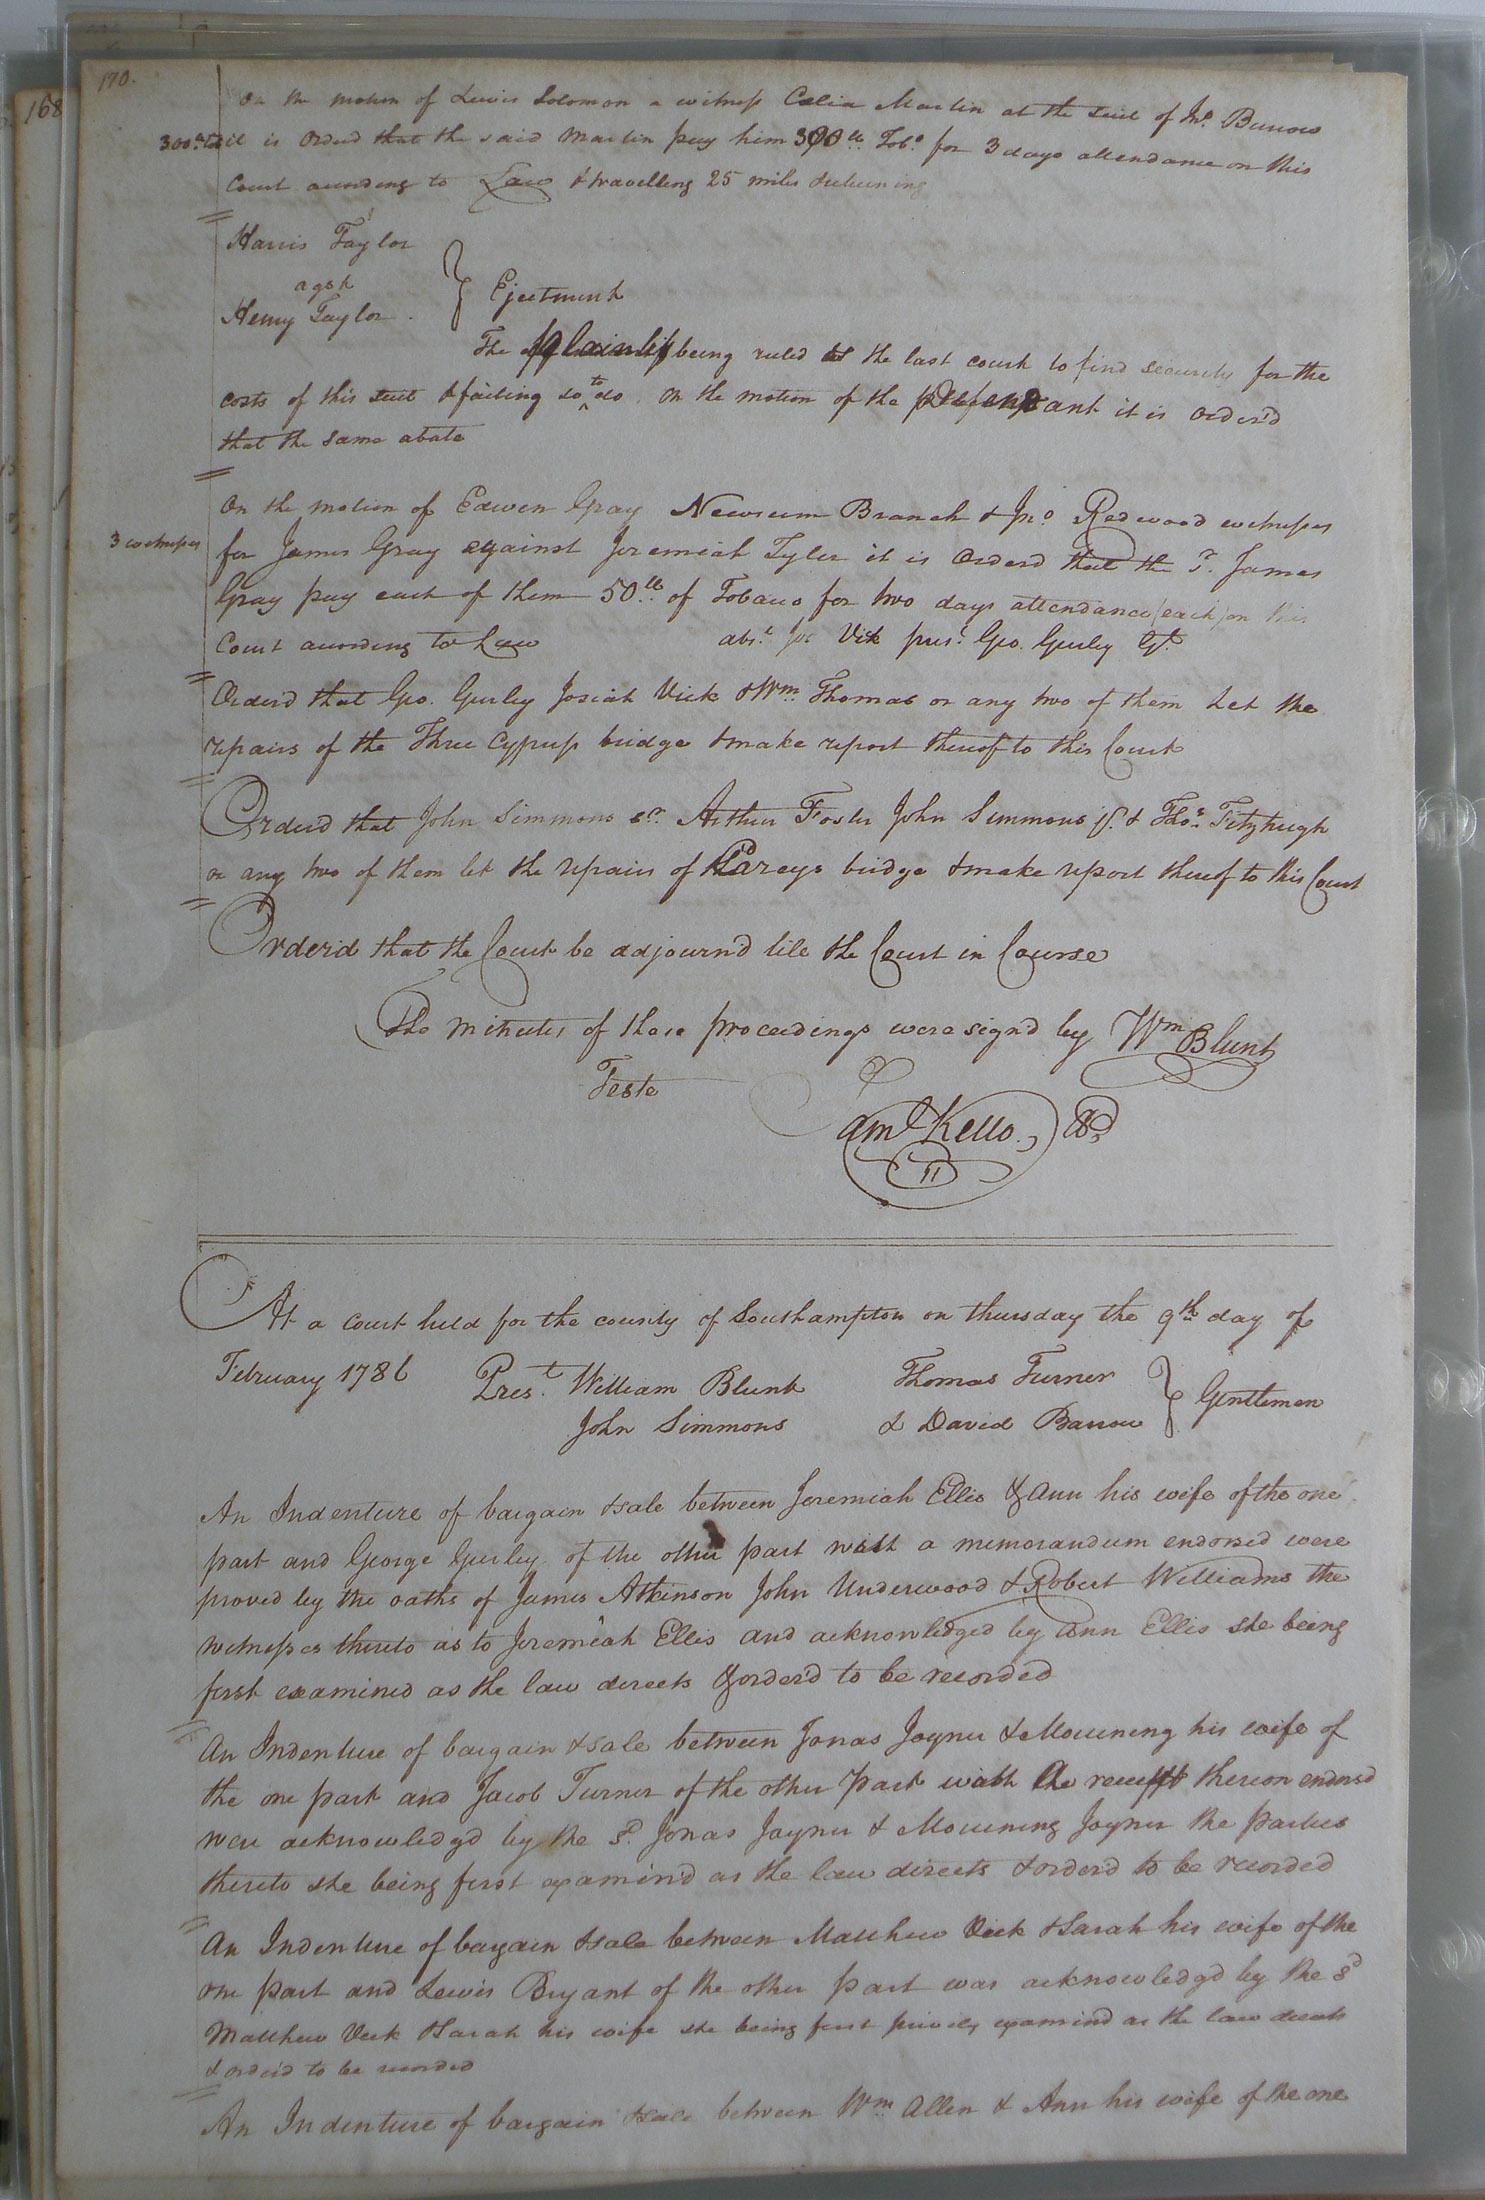 170.
168
On the motion of Lewis Solomon a witness Celia Martin at the suit of Jno. Barrow
it is Orderd that the said Martin pay him 300 lb Tobo. for 3 days attendance on this
Court according to Law & travelling 25 miles & returning
Harris Taylor
agst
Henry Taylor
} Ejectment
The plaintif being ruled at the last court to find security for the
costs of this suit & failing so to do on the motion of the Defendant it is Order'd
that the same abate
3 witnesses
On the motion of Edwin Gray Newsum Branch & Jno Redwood witnesses
for James Gray against Jeremiah Tyler it is Orderd that the sd. James
Gray pay each of them 50 lb. of Tobacco for two days attendance (each) on this
Court according to Law
abst. Jos Vick prest. Geo. Gurley Gt.
Orderd that Geo. Gurley Josiah Vick & Wm. Thomas or any two of them Let the
repairs of the Three Cypress bridge & make report thereof to this Court
Orderd that John Simmons sr. Arthur Foster John Simmons jr. & Thos. Fitzhugh
or any two of them let the repairs of Careys bridge & make report thereof to this Court
Order'd that the Court be adjourn'd till the Court in Course
The minutes of these proceedings were sign'd by Wm Blunt
Teste
Saml Kello
At a court held for the county of Southampton on thursday the 9th day of
February 1786 Prest. William Blunt Thomas Turner
John Simmons & David Barrow } Gentlemen
An Indenture of bargain & sale between Jeremiah Ellis & Ann his wife of the one
part and George Gurley of the other part with a memorandum endorsed were
proved by the oaths of James Atkinson John Underwood & Robert Williams the
witnesses thereto as to Jeremiah Ellis and acknowledged by Ann Ellis she being
first examined as the law directs & order'd to be recorded
An Indenture of bargain & sale between Jonas Joyner & Mourning his wife of
the one part and Jacob Turner of the other part with the receipt thereon endorsd
were acknowledg'd by the sd. Jonas Joyner & Mourning Joyner the parties
thereto she being first examin'd as the law directs & orderd to be recorded
An Indenture of bargain & sale between Matthew Vick & Sarah his wife of the
one part and Lewis Bryant of the other part was acknowledg'd by the sd
Matthew Vick & Sarah his wife she being first privily examin'd as the law directs
& order'd to be recorded
An Indenture of bargain & sale between Wm. Allen & Ann his wife of the one